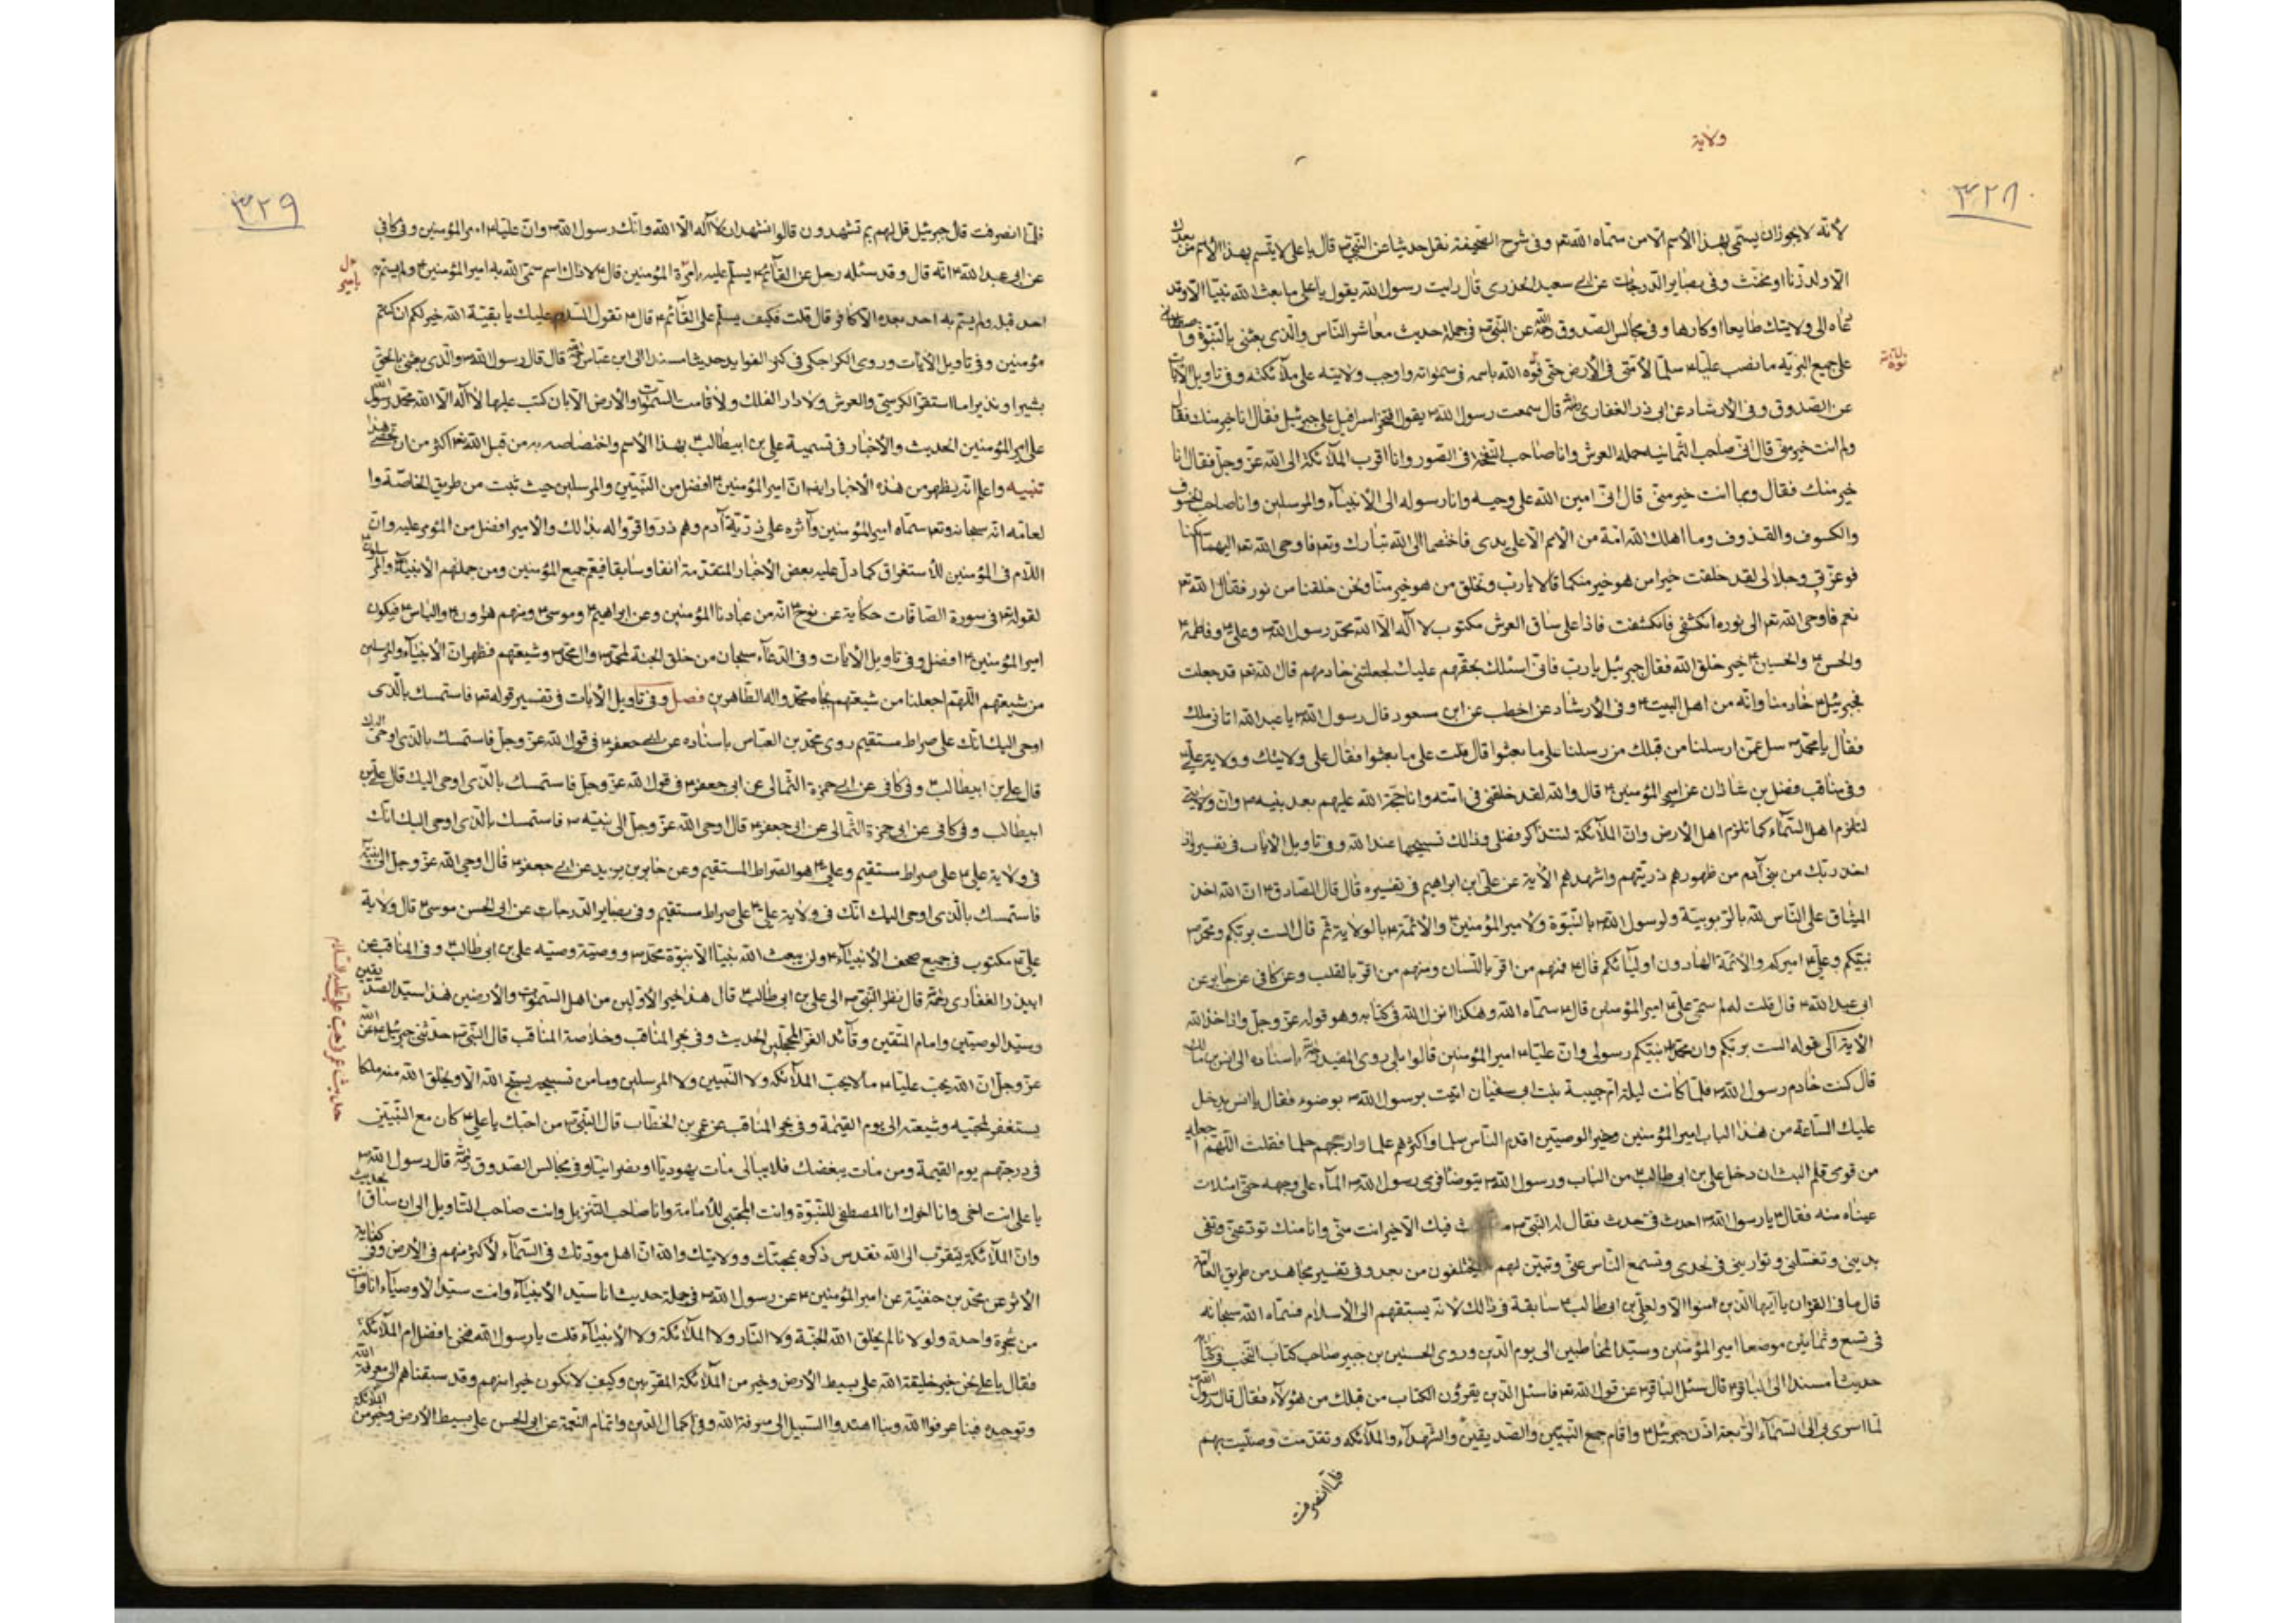 ولاية
٣٢٨
لأنّه لا يجوز ان يسمّى بهذا الأسم الّا من سمّاه الله تعم وفى شرح الصّحيفة نقل حديثا عن النّبى ص قال يا على لا يتسم بهذا الأسم من بعدك
الّا ولد زنا او مخنّث وفى بصاير الدّرجات عن ابى سعيد الخدرى قال رايت رسول الله يقول يا على ما بعث الله نبيّا الّا وقد
دعاه الى ولايتك طايعا او كارها وفى مجالس الصّدوق ره عن النّبى ص فى جملة حديث معاشر النّاس والّذى بعثنى بالنّبوّة واصطفانى
على جميع البريّة ما نصب عليّا ع سلما لأمّتى فى الأرض حتّى نوّه الله باسمه فى سمواته واوجب ولايته على ملآئكته وفى تاويل الأيات
نوّه
عن الصّدوق وفى الأرشاد عن ابى ذر الغفارى رض قال سمعت رسول الله ص يقول افتخر اسرافيل على جبرئيل فقال انا خير منك فقال
ولم انت خير منّى قال انّى صاحب الثّمانيه حملة العرش وانا صاحب النّفخة فى الصّور وانا اقرب الملآئكة الى الله عزّ وجلّ فقال انا
خير منك فقال وبما انت خير منّى قال انّى امين الله على وحيه وانا رسوله الى الأنبيآء والمرسلين وانا صاحب الخسوف
والكسوف والقذوف وما اهلك الله امّة من الأمم الّا على يدى فاختصما الى الله تبارك وتعم فاوحى الله تعم اليهما اسكتا
فوعزّتى وجلالى لقد خلقت خيرا من هو خير منكما قالا يا رب وتخلق من هو خير منّا ونحن خلقنا من نور فقال الله تعم
نعم فاوحى الله تعم الى نوره انكشفى فانكشفت فاذا على ساق العرش مكتوب لا اله الّا الله محمّد رسول الله ص وعلى ع وفاطمة ع
والحسن ع والحسين ع خير خلق الله فقال جبرئيل يا رب فانّى اسئلك بحقّهم عليك لجعلتنى خادمهم قال الله تعم قد جعلت
فجبرئيل ع خادمنا وانّه من اهل البيت ع وفى الأرشاد عن اخطب عن ابن مسعود قال رسول الله ص يا عبد الله اتانى ملك
فقال يا محمّد ص سل عمّن ارسلنا من قبلك من رسلنا على ما بعثوا قال قلت على ما بعثوا فقال على ولايتك وولاية على ع
وفى مناقب فضل بن شاذان عن امير المؤمنين ع قال والله لقد خلقنى فى امّته وانا حجّة الله عليهم بعد نبيه ص وان ولايتى
لتلزم اهل السّمآء كما تلزم اهل الأرض وانّ الملآئكة لتتذاكر فضلى وذلك تسبيحها عند الله وفى تاويل الأيات فى تفسير واذ
اخذ ربّك من بنى آدم من ظهورهم ذريّتهم واشهدهم الأية عن على ابن ابراهيم فى تفسيره قال قال الصّادق ع انّ الله اخذ
الميثاق على النّاس لله بالرّبوبيّة ولرسول الله ص بالنّبوّة ولأمير المؤمنين ع والأئمّة ع بالولاية ثمّ قال الست بربّكم ومحمّد ص
نبيّكم وعلى ع اميركم والأئمّة الهادون اوليآئكم قال ع فمنهم من اقرّ باللّسان ومنهم من اقرّ بالقلب وعن كافى عن جابر عن
ابى عبد الله ع قال قلت له لم سمّى على ع امير المؤمنين قال ع سمّاه الله وهكذا انزل الله فى كتابه وهو قوله عزّ وجلّ واذ اخذ الله
الأية الى قوله الست بربّكم وان محمّد ص نبيّكم رسولى وان عليّا ع امير المؤمنين قالوا بلى روى المفيد ره باسناده الى انس بن مالك
قال كنت خادم رسول الله ص فلمّا كانت ليلة امّ حبيبة بنت ابى سفيان اتيت برسول الله ص بوضوء فقال يا انس يدخل
عليك السّاعة من هذا الباب امير المؤمنين وخير الوصيّين اقدم النّاس سلما واكثرهم علما وارجحهم حلما فقلت اللّهمّ اجعله
من قومى فلم البث ان دخل على بن ابى طالب ع من الباب ورسول الله ص يتوضّا فرمى رسول الله ص المآء على وجهه حتّى امتلات
عيناه منه فقال ع يا رسول الله ص احدث فىّ حدث فقال له النّبى ص ما فيك الّا خير انت منّى وانا منك تودّى عنّى وتفى
بدينى وتغسلنى وتوارينى فى لحدى وتسمع النّاس عنّى وتبيّن لهم ما يختلفون من بعدى وفى تفسير مجاهد من طريق العامّة
قال ما فى القران يا ايّها الّذين امنوا الّا ولعلى بن ابى طالب ع سابقة فى ذلك لأنّه يسبقهم الى الأسلام فسمّاه الله سبحانه
فى تسع وثمانين موضعا امير المؤمنين وسيّد المخاطبين الى يوم الدّين وروى الحسين بن جبير صاحب كتاب النّخب وكتاب
حديثا مسندا الى الباقر ع قال سئل الباقر ع عن قول الله تعم فاسئل الّذين يقرؤن الكتاب من قبلك من هؤلآء فقال قال رسول الله ص
لمّا اسرى بى الى السّمآء الرّابعة اذّن جبرئيل ع واقام جمع النّبيّين والصّديقين والشّهدآء والملآئكه وتقدّمت وصلّيت بهم
فلمّا انصرفت
٣٢٩
فلمّا انصرفت قال جبرئيل قل لهم بم تشهدون قالوا نشهد ان لا اله الّا الله وانّك رسول الله ص وان عليّا ع امير المؤمنين وفى كافى
عن ابى عبد الله ع انّه قال وقد سئله رجل عن القآئم ع يسلّم عليه بامرة المؤمنين قال ع لا ذاك اسم سمّى الله به امير المؤمنين ع ولم يتسم به
احد قبله ولم يتسم به احد بعده الّا كافر قال قلت فكيف يسلّم على القآئم ع قال ع تقول السّلام عليك يا بقيّة الله خير لكم ان كنتم
مؤمنين وفى تاويل الأيات وروى الكراجكى فى كنز الفوايد حديثا مسندا الى ابن عبّاس رض قال قال رسول الله ص والّذى بعثنى بالحق
بشيرا ونذيرا ما استقرّ الكرسى والعرش ولا دار الفلك ولا قامت السّموات والأرض الّا بان كتب عليها لا اله الّا الله محمّد رسول الله
على امير المؤمنين الحديث والأخبار فى تسمية على بن ابيطالب ع بهذا الأسم واختصاصه به من قبل الله تعم اكثر من ان تحصى هذا
تنبيه واعلم انّه يظهر من هذه الأخبار ايضا انّ امير المؤمنين ع افضل من النّبيّين والمرسلين حيث ثبت من طريق الخاصّة وا
لعامّه انّه سبحانه وتعم سمّاه امير المؤمنين وآثره على ذريّة آدم وهم ذر واقرّوا له بذلك والأمير افضل من المؤمّر عليه وانّ
اللّام فى المؤمنين للأستغراق كما دلّ عليه بعض الأخبار المتقدّمة انفا وسابقا فيعم جميع المؤمنين ومن جملتهم الأنبيآء والمرسلون
لقوله تعم فى سورة الصّافات حكاية عن نوح ع انّه من عبادنا المؤمنين وعن ابراهيم ع وموسى ع ومنهم هرون ع والياس ع فيكون
امير المؤمنين ع افضل وفى تاويل الأيات وفى الدّعآء سبحان من خلق الجنّة لمحمّد ص وال محمّد ص وشيعتهم فظهر انّ الأنبيآء والمرسلين
من شيعتهم اللّهمّ اجعلنا من شيعتهم بجاه محمّد واله الطّاهرين فصل وفى تاويل الأيات فى تفسير قوله تعم فاستمسك بالّذى
اوحى اليك انّك على صراط مستقيم روى محمّد بن العبّاس باسناده عن ابى جعفر ع فى قول الله عزّ وجلّ فاستمسك بالّذى اوحى اليك
قال على بن ابيطالب ع وفى كافى عن ابى حمزة الثّمالى عن ابى جعفر ع فى قول الله عزّ وجلّ فاستمسك بالّذى اوحى اليك قال على بن
ابيطالب وفى كافى عن ابى حمزة الثّمالى عن ابى جعفر ع قال اوحى الله عزّ وجلّ الى نبيّه ص فاستمسك بالّذى اوحى اليك انّك
فى ولاية على ع على صراط مستقيم وعلى ع هو الصّراط المستقيم وعن جابر بن يزيد عن ابى جعفر ع قال اوحى الله عزّ وجلّ الى نبيّه
فاستمسك بالّذى اوحى اليك انّك فى ولاية على ع على صراط مستقيم وفى بصاير الدّرجات عن ابى الحسن موسى ع قال ولاية
على ع مكتوب فى جميع صحف الأنبيآء ع ولن يبعث الله نبيّا الّا بنبوّة محمّد ص ووصيّة وصيّه على بن ابى طالب ع وفى المناقب عن
ابى ذر الغفارى رض قال نظر النّبى ص الى على بن ابى طالب ع قال هذا خير الأوّلين من اهل السّموات والأرضين هذا سيّد الصّديقين
وسيّد الوصيّين وامام المتّقين وقآئد الغرّ المحجّلين الحديث وفى بحر المناقب وخلاصة المناقب قال النّبى ص حدّثنى جبرئيل ع عن الله
عزّ وجلّ انّ الله يحبّ عليّا ع ما لا يحبّ الملآئكه ولا النّبيين ولا المرسلين وما من تسبيحة يسبّح الله الّا ويخلق الله منه ملكا
يستغفر لمحبّيه وشيعته الى يوم القيمة وفى بحر المناقب عن عمر بن الخطّاب قال النّبى ص من احبّك يا على ع كان مع النّبيّين
فى درجتهم يوم القيمة ومن مات يبغضك فلا يبالى مات يهوديّا او نصرانيّا وفى مجالس الصّدوق ره قال رسول الله ص
يا على انت اخى وانا اخوك انا المصطفى للنّبوّة وانت المجتبى للأمامة وانا صاحب التّنزيل وانت صاحب التّاويل الى ان ساق الحديث
وانّ الملآئكة يتقرّب الى الله تقدس ذكره بمحبّتك وولايتك والله انّ اهل مودّتك فى السّمآء لأكثر منهم فى الأرض وفى كفاية
الأثر عن محمّد بن حنفيّة عن امير المؤمنين ع عن رسول الله ص فى جملة حديث انا سيّد الأنبيآء وانت سيّد الأوصيآء انا وانت
من شجرة واحدة ولولانا لم يخلق الله الجنّة ولا النّار ولا الملآئكة ولا الأنبيآء قلت يا رسول الله فنحن افضل ام الملآئكة
فقال يا على نحن خير خليقة الله على بسيط الأرض وخير من الملآئكة المقرّبين وكيف لا نكون خيرا منهم وقد سبقناهم الى معرفة الله
وتوحيده فبنا عرفوا الله وبنا اهتدوا السّبيل الى معرفة الله وفى اكمال الدّين واتمام النّعمة عن ابى الحسن على بسيط الأرض وخير من الملآئكة